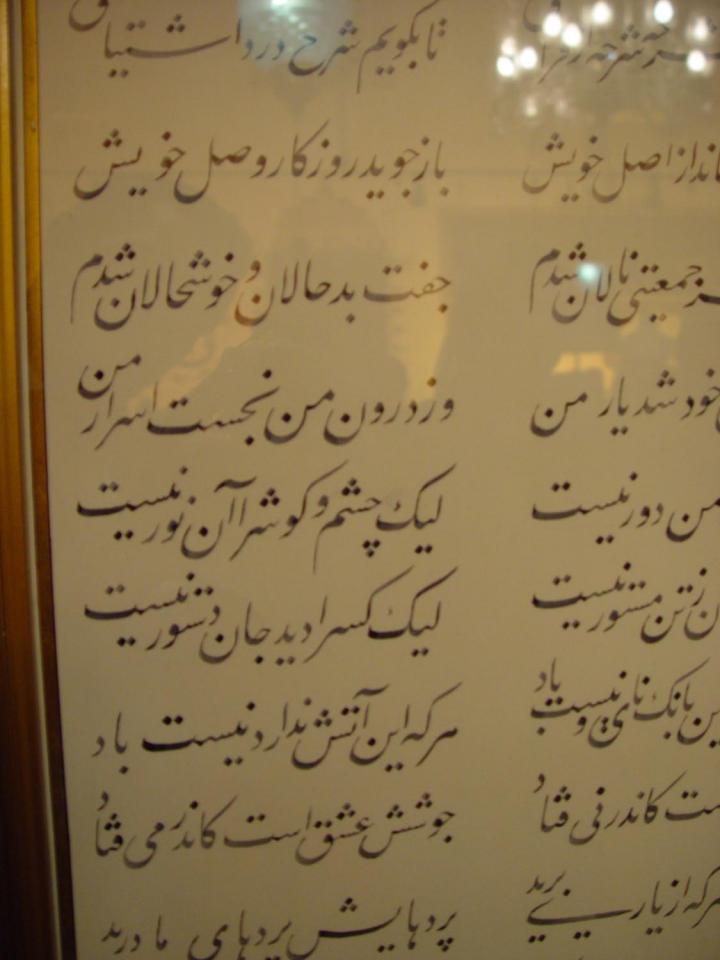 شرحه از فراق تا بگویم شرح درد اشتیاق
ماند از اصل خویش باز جوید روزگار وصل خویش
جمعیتی نالان شدم جفت بدحالان و خوشحالان شدم
خود شد یار من وز درون من نجست اسرار من
من دور نیست لیک چشم و گوش را آن نور نیست
ز تن مستور نیست لیک کس را دید جان دستور نیست
این بانک نای و نیست باد هر که این آتش ندارد نیست باد
ست کاندر نی فتاد جوشش عشق است کاندر می فتاد
هر که از یاری برید پردهایش پردهای ما درید